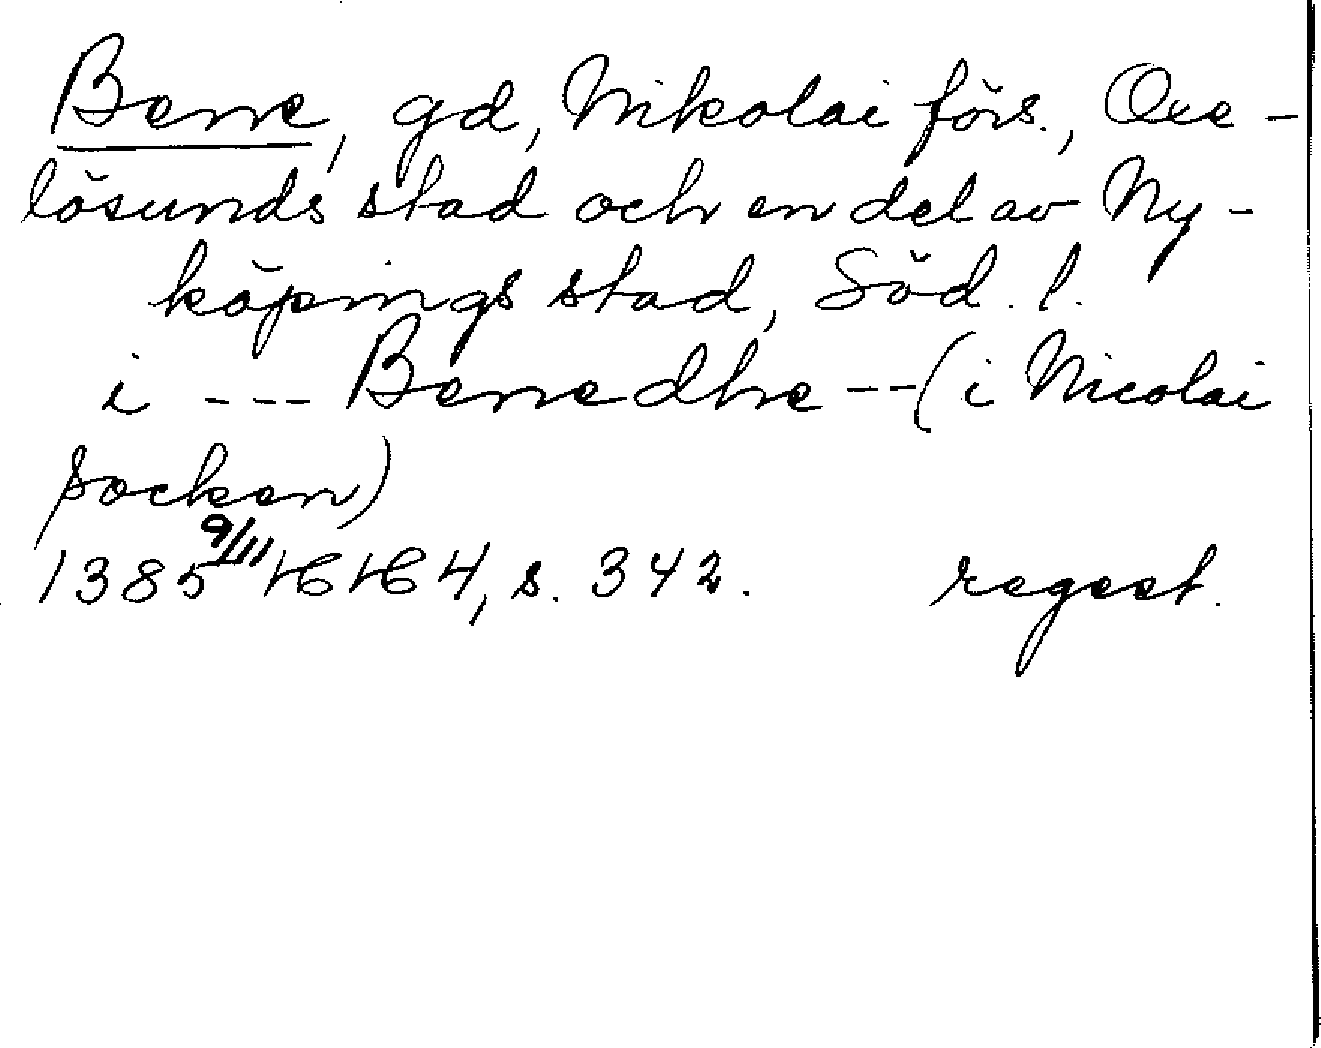 Bene, gd, Nikolai förs., Oxe-
lösunds stad och en del av Ny-
köpings stad, Söd. l.
i --- Benedhe -- (i Nicolai
socken)
1385 9/11 s. 342. regest.